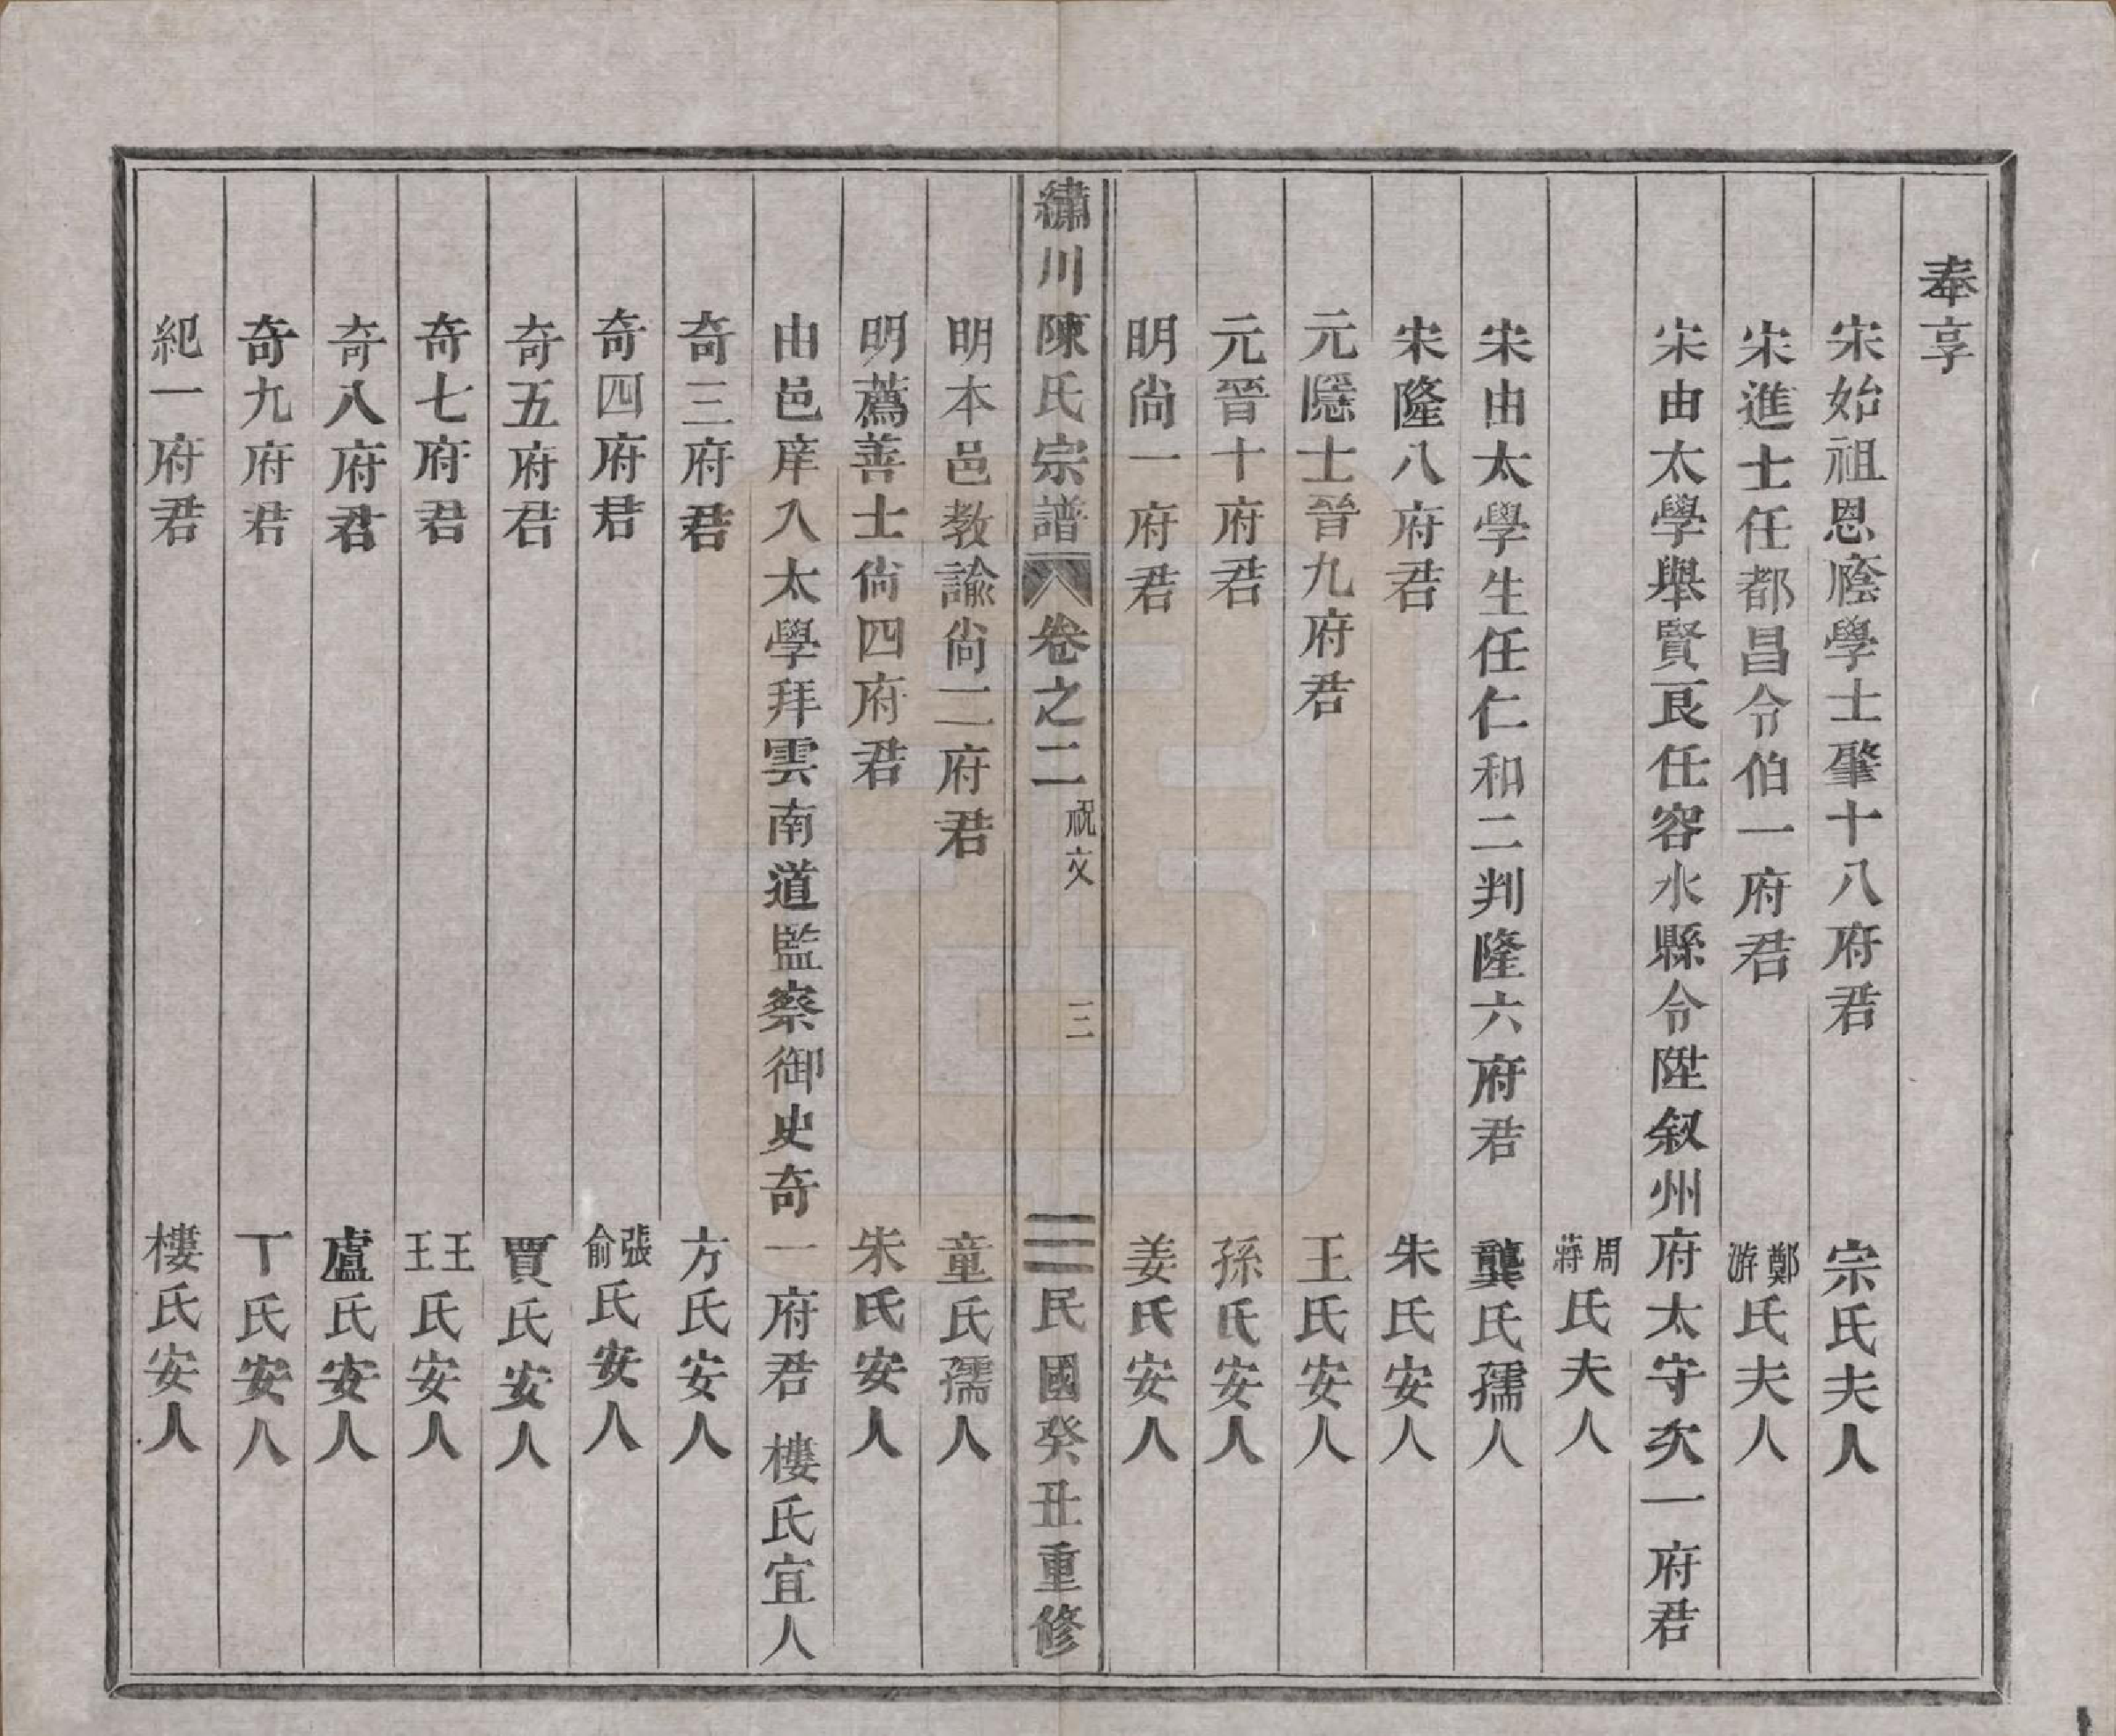 奉享
宋始祖恩廕學士肇十八府君 宗氏夫人
宋進士任都昌令伯一府君 鄭游氏夫人
宋由太學舉賢良任容水縣令陞叙州府太守次一府君
周蔣氏夫人
宋由太學生任仁和二判隆六府君 龔氏孺人
宋隆八府君 朱氏安人
元隱士晉九府君 王氏安人
元晉十府君 孫氏安人
明尙一府君 姜氏安人
繡川陳氏宗譜 卷之二 祝文 三 民國癸丑重修
明本邑教諭尙二府君 童氏孺人
明薦善士尙四府君 朱氏安人
由邑庠入太學拜雲南道監察御史奇一府君 樓氏宜人
奇三府君 方氏安人
奇四府君 張俞氏安人
奇五府君 賈氏安人
奇七府君 王王氏安人
奇八府君 盧氏安人
奇九府君 丁氏安人
紀一府君 樓氏安人